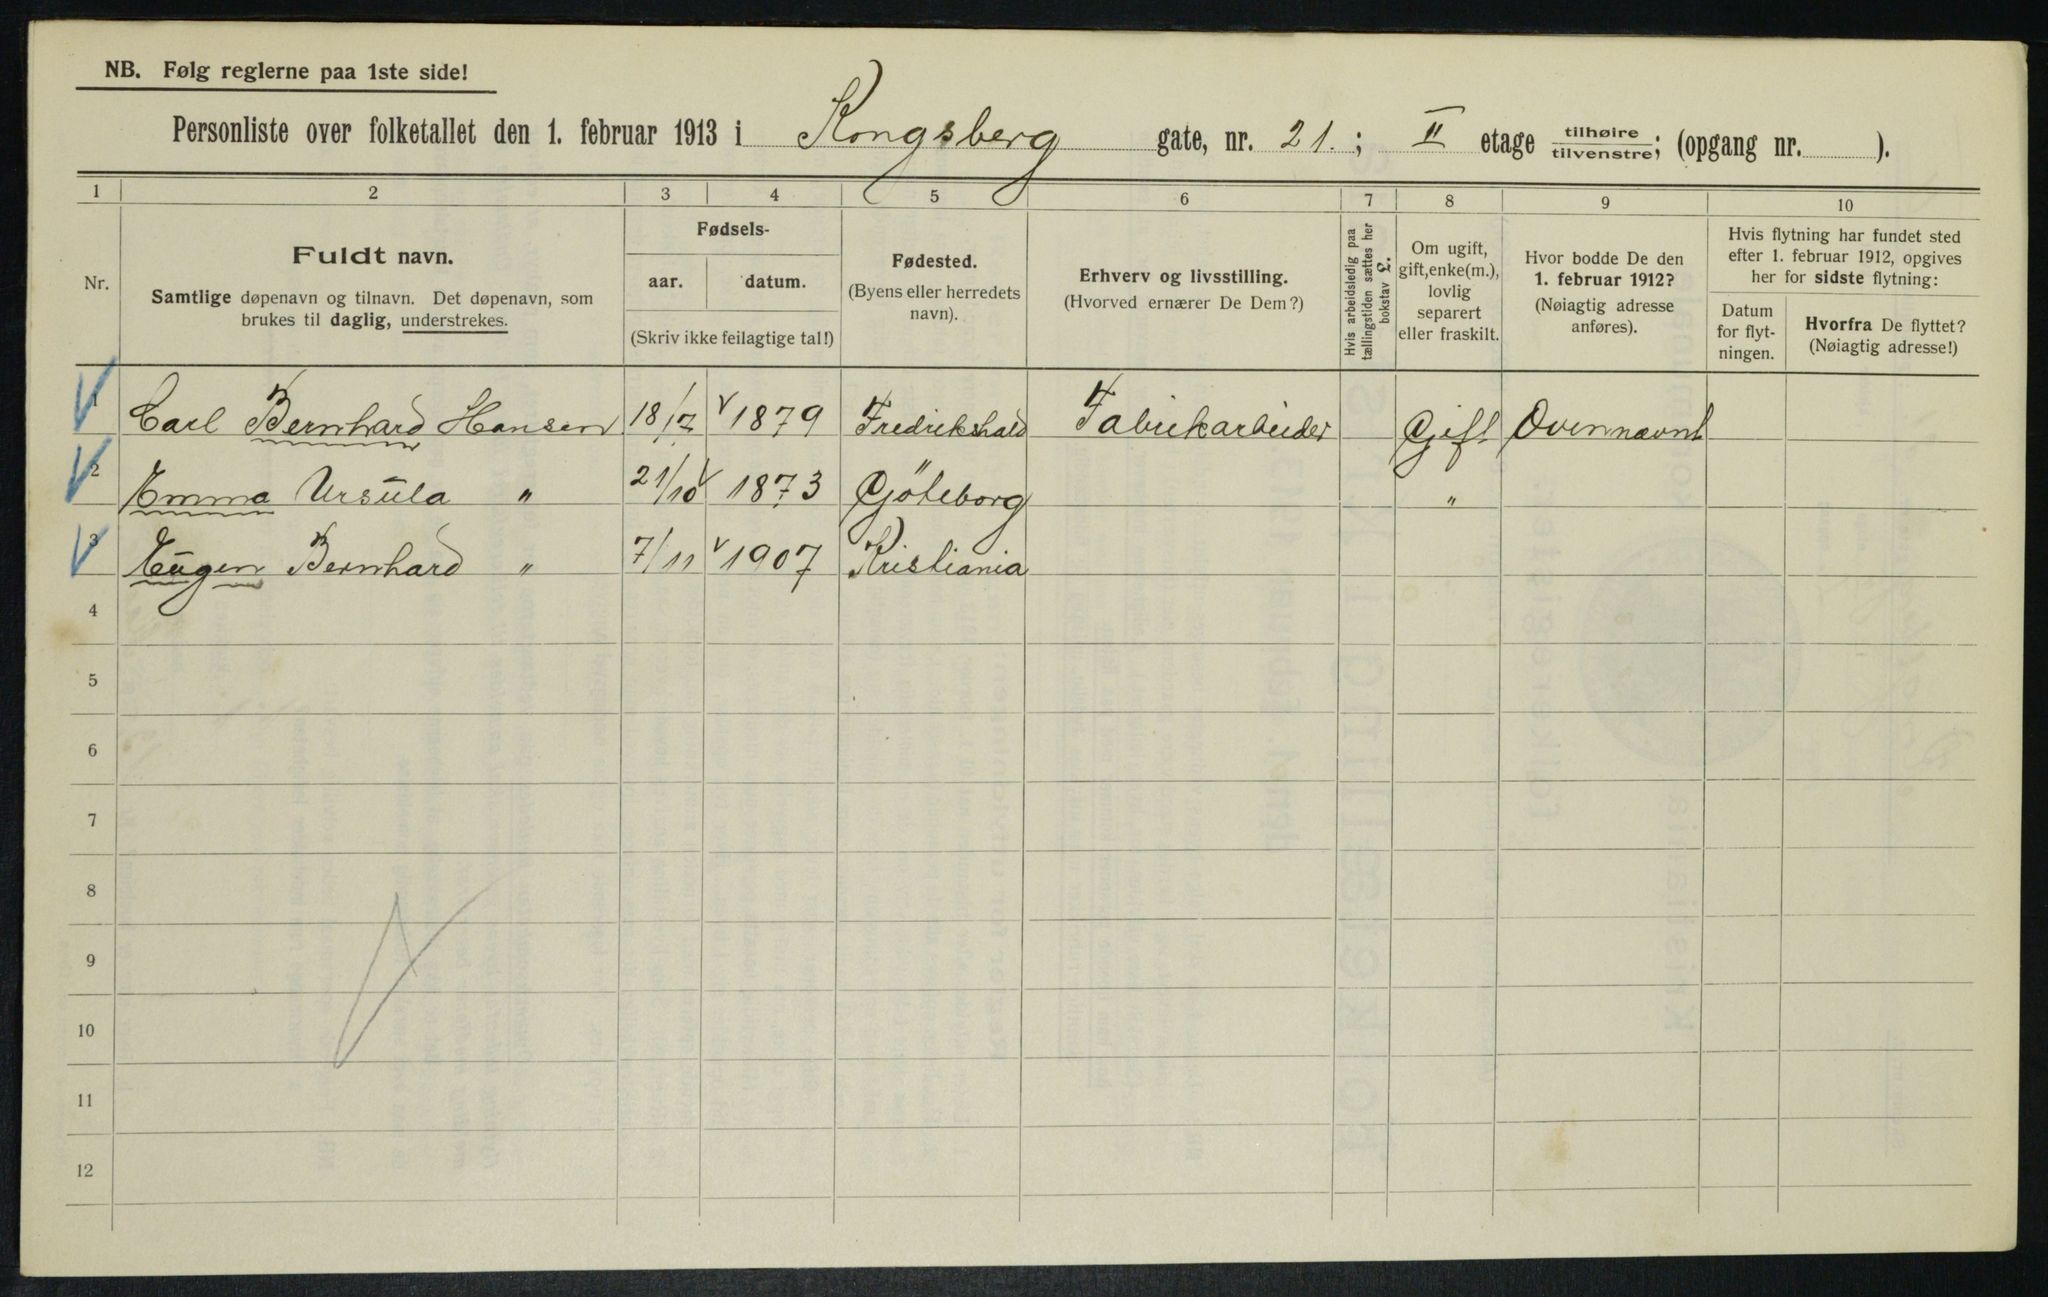 NB. Følg reglerne paa 1ste side!
Personliste over folketallet den 1. februar 1913 i Kongsberg gate, nr. 21. ; II etage tilhøire / tilvenstre; (opgang nr. ).
1 2 3 4 5 6 7 8 9 10
Nr.
Fuldt navn.
Samtlige døpenavn og tilnavn. Det døpenavn, som
brukes til daglig, understrekes.
Fødsels-
aar. datum.
(Skriv ikke feilagtige tal!)
Fødested.
(Byens eller herredets
navn).
Erhverv og livsstilling.
(Hvorved ernærer De Dem?)
Hvis arbeidsledig paa
tællingstiden sættes her
bokstav L.
Om ugift,
gift, enke(m.),
lovlig
separert
eller fraskilt.
Hvor bodde De den
1. februar 1912?
(Nøiagtig adresse
anføres).
Hvis flytning har fundet sted
efter 1. februar 1912, opgives
her for sidste flytning:
Datum
for flyt-
ningen.
Hvorfra De flyttet?
(Nøiagtig adresse!)
1 Carl Bernhard Hansen 18/12 1879 Fredrikshald Fabrikarbeider Gift Ovennævnt
2 Emma Ursula " 21/10 1873 Göteborg "
3 Eugen Bernhard " 7/11 1907 Kristiania
4
5
6
7
8
9
10
11
12